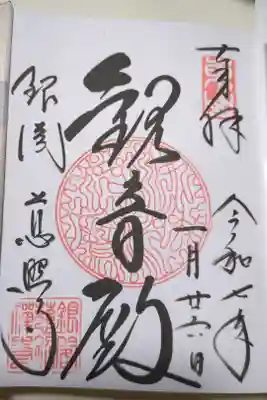 奉拝
令和七年
一月廿六日
観音殿
銀閣 慈照寺